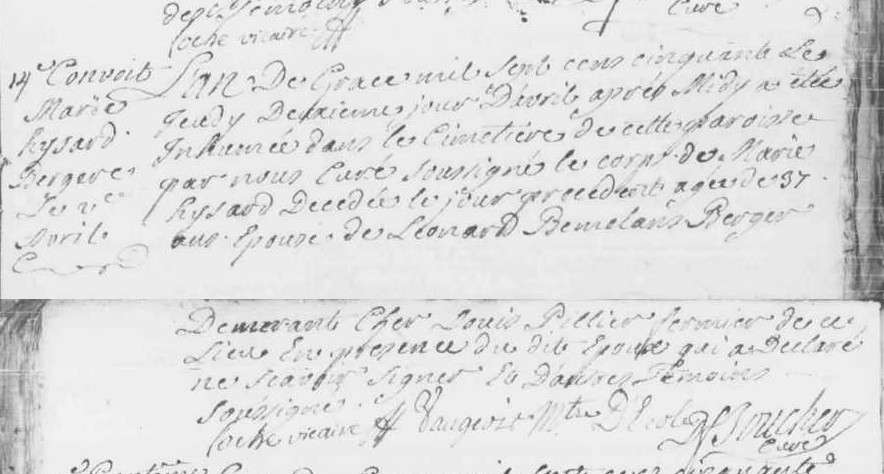 Curé
Coche vicaire
14e Convoit
Marie
hysard
Bergere
Le 2e
Avril
L'an De Grace mil sept cens cinquante Le
Jeudy Deuxieme jour D'avril après Midy a été
Inhumée dans le Cimetiére de cette paroisse
par nous Curé soussigné le corps de Marie
hysard Decedée le jour precedent agée de 37
ans Epouse de Léonard Bemelans Berger
Demeurant Cher Louis Pillier fermier de ce
Lieu En presence du dit Epoux qui a Declaré
ne scavoir signer Et D'autres Temoins
soussignés
Coche vicaire Vaugeois Mtre D'Ecole Boucher
Curé